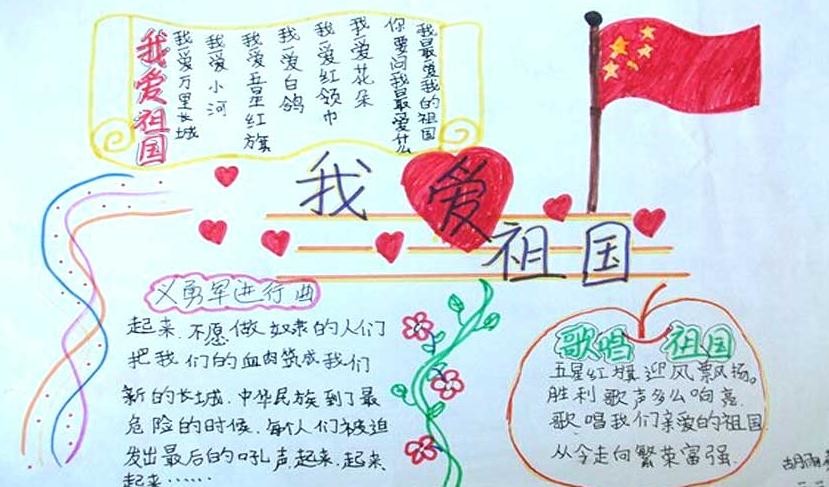 我爱祖国
我爱万里长城
我爱小河
我爱五星红旗
我爱白鸽
我爱红领巾
我爱花朵
你要问我最爱什么
我最爱我的祖国
我爱祖国
义勇军进行曲
起来.不愿做奴隶的人们
把我们的血肉筑成我们
新的长城.中华民族到了最
危险的时候.每个人们被迫
发出最后的吼声.起来.起来.
起来……
歌唱祖国
五星红旗迎风飘扬。
胜利歌声多么响亮.
歌唱我们亲爱的祖国.
从今走向繁荣富强.
胡雨